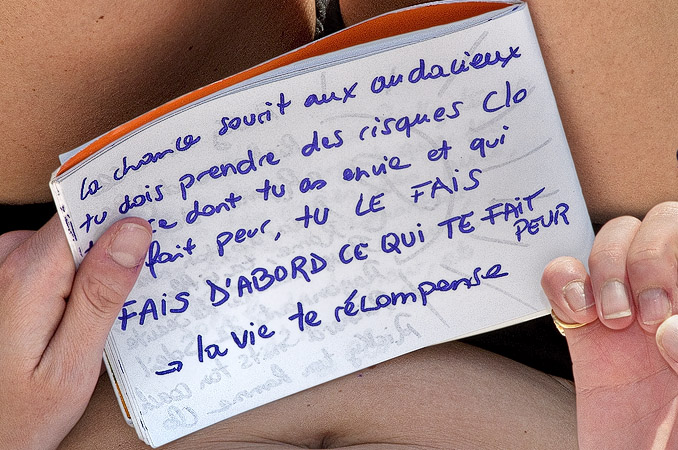 La chance sourit aux audacieux
tu dois prendre des risques Clo
ce dont tu as envie et qui
fait peur, tu LE FAIS
FAIS D'ABORD CE QUI TE FAIT
PEUR
→ la vie te récompense